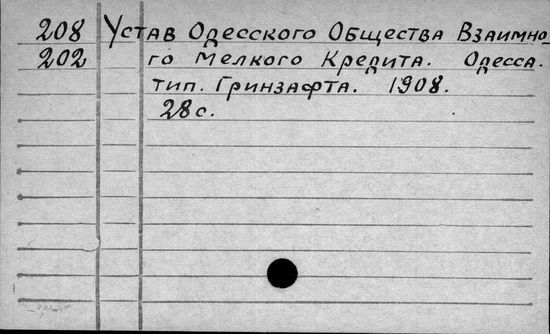 208 Устав Одесского Общества Взаимно-
202 го Мелкого Кредита. Одесса.
тип. Гринзафта. 1908.
28 с.